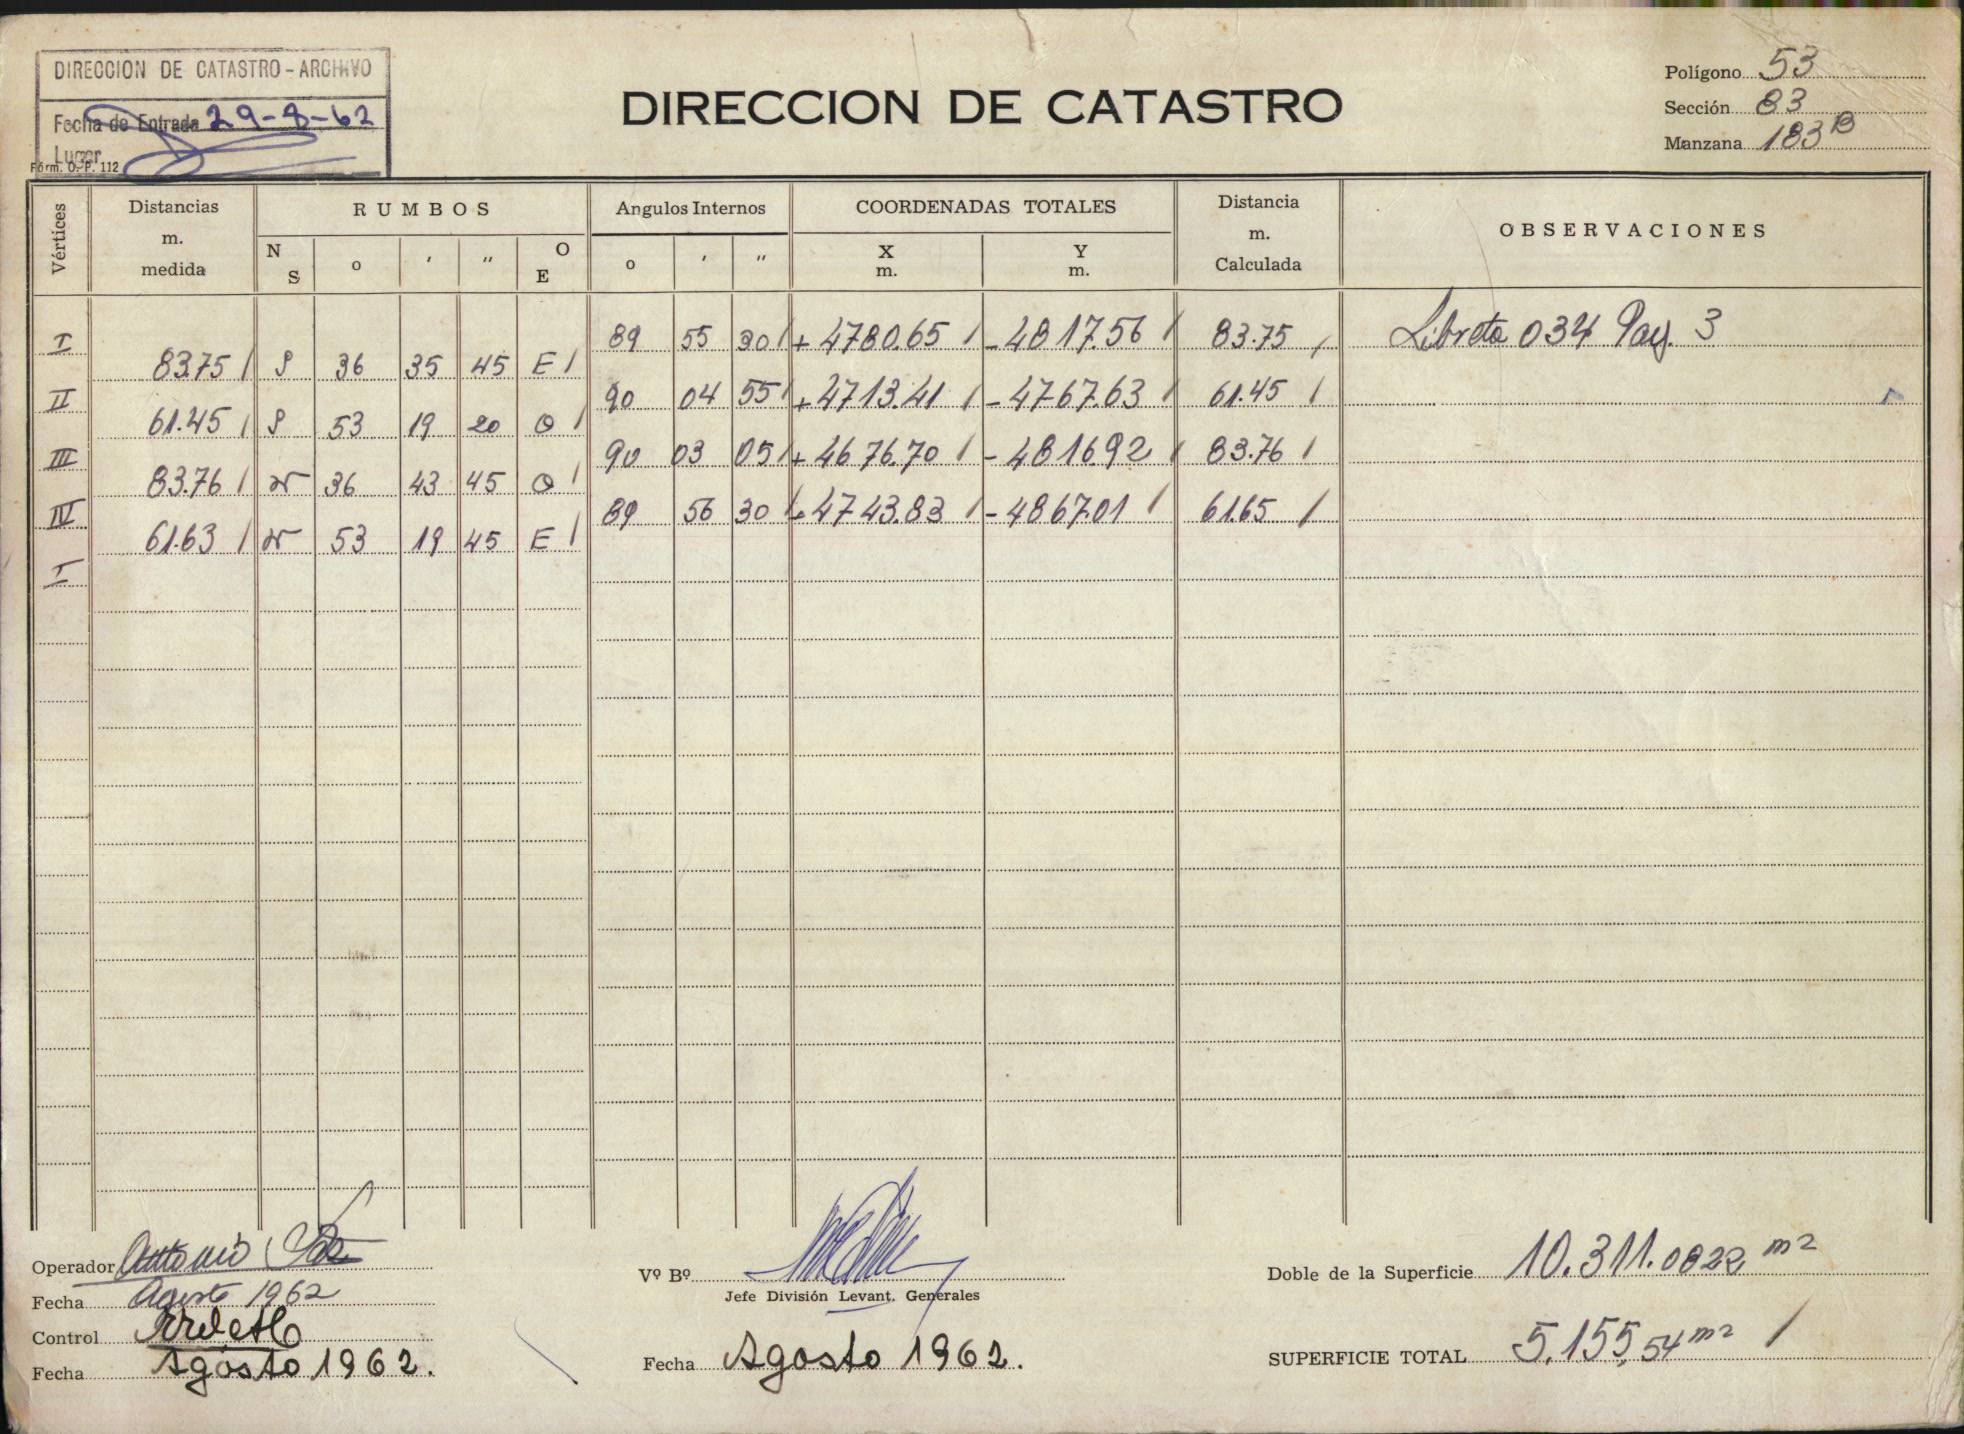 DIRECCION DE CATASTRO - ARCHIVO
Fecha de Entrada 29-8-62
Lugar
Form. O. P. 112
DIRECCION DE CATASTRO
Polígono 53
Sección 83
Manzana 183 B
Vértices
Distancias m. medida
RUMBOS
N S o ′ ″ O E
Angulos Internos
o ′ ″
COORDENADAS TOTALES
X m. Y m.
Distancia m. Calculada
OBSERVACIONES
I 89 55 30 + 4780.65 - 4817.56 83.75 Libreta 034 Pag. 3
83.75 S 36 35 45 E
II 90 04 55 + 4713.41 - 4767.63 61.45
61.45 S 53 19 20 O
III 90 03 05 + 4676.70 - 4816.92 83.76
83.76 N 36 43 45 O
IV 89 56 30 + 4743.83 - 4867.01 61.65
61.63 N 53 19 45 E
I
Operador Antonio
Fecha Agosto 1962
Control
Fecha Agosto 1962.
Vº Bº
Jefe División Levant. Generales
Fecha Agosto 1962.
Doble de la Superficie 10.311.0822 m2
SUPERFICIE TOTAL 5.155,54 m2